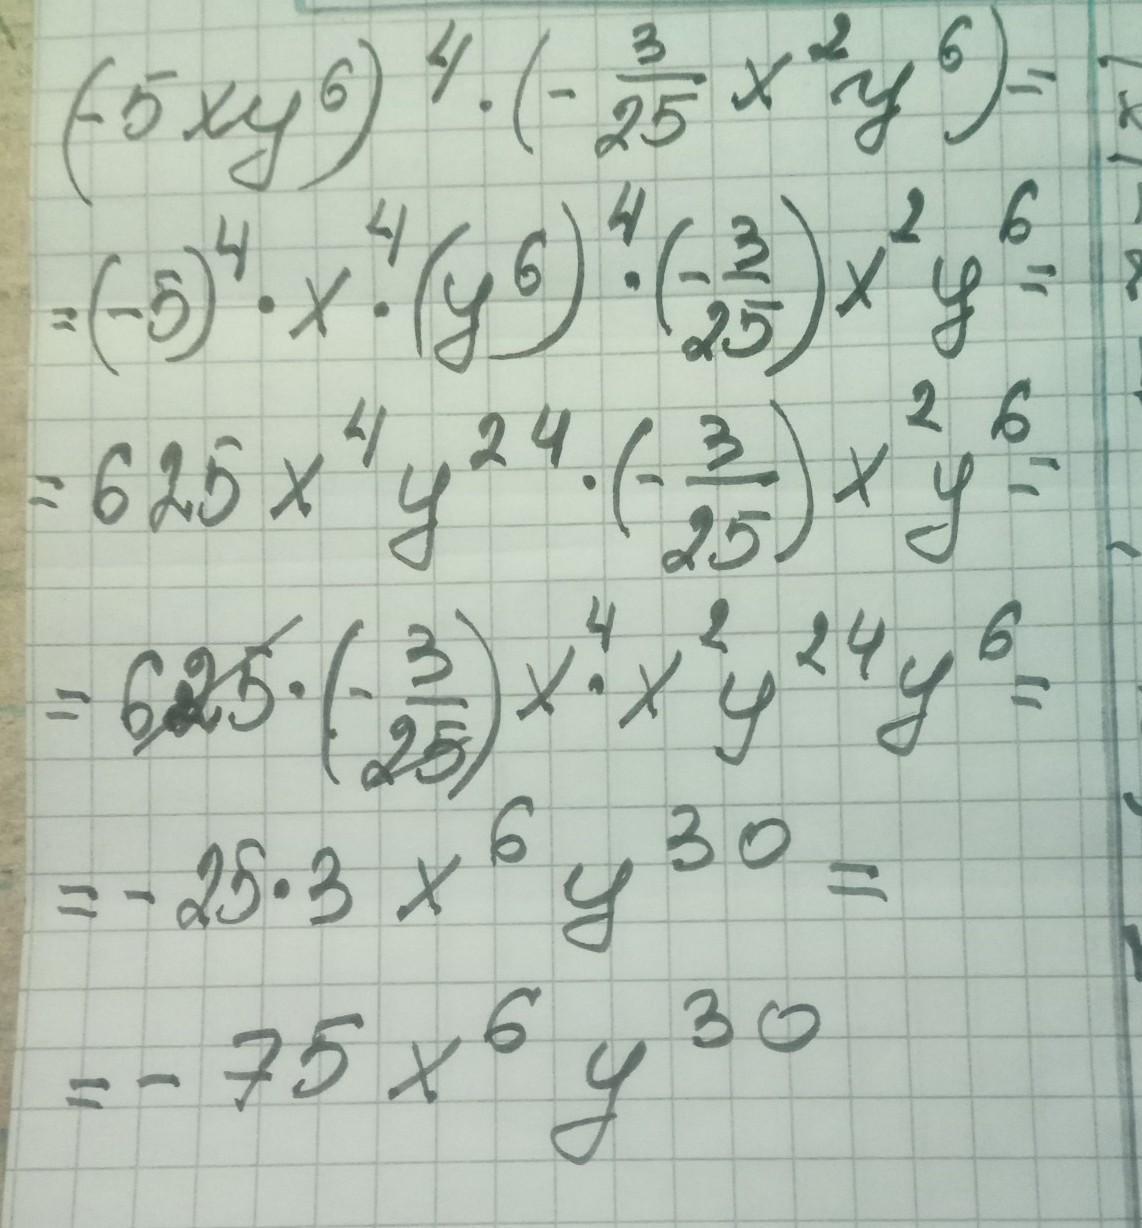 (-5xy⁶)⁴·(-3/25 x²y⁶)=
=(-5)⁴·x⁴·(y⁶)⁴·(-3/25)x²y⁶=
=625x⁴y²⁴·(-3/25)x²y⁶=
=625·(-3/25)x⁴·x²y²⁴y⁶=
=-25·3x⁶y³⁰=
=-75x⁶y³⁰